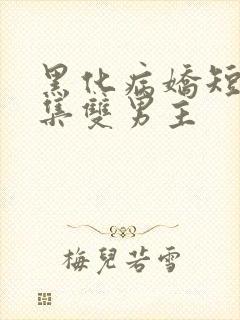 黑化病嬌短
集雙男主
梅兒若雪